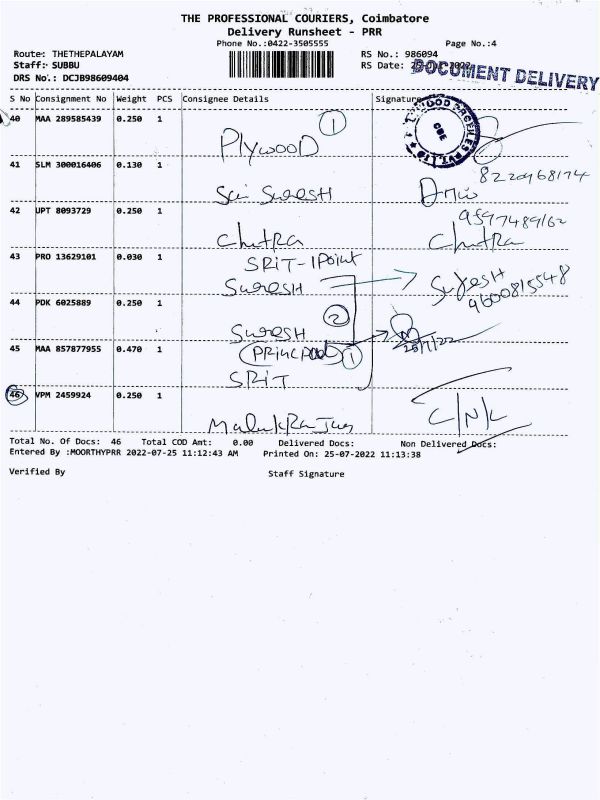 THE PROFESSIONAL COURIERS, Coimbatore
Delivery Runsheet - PRR
Phone No.:0422-3505555
Page No.:4
Route: THETHEPALAYAM
RS No.: 986094
Staff: SUBBU
RS Date: 25-Jul-2022
DRS No.: DCJB98609404
DOCUMENT DELIVERY
S No Consignment No Weight PCS Consignee Details Signature
40 MAA 289585439 0.250 1
1
PLYWOOD
41 SLM 300016406 0.130 1
8220968174
Sai Suresh
42 UPT 8093729 0.250 1
9597489162
Chitra Chitra
43 PRO 13629101 0.030 1
SRiT-1Point
Suresh Suresh
9600815548
44 PDK 6025889 0.250 1
2
Suresh
45 MAA 857877955 0.470 1
Princpal 1
25/7/22
SRiT
46 VPM 2459924 0.250 1
C/N/L
Total No. Of Docs: 46 Total COD Amt: 0.00 Delivered Docs: Non Delivered Docs:
Entered By :MOORTHYPRR 2022-07-25 11:12:43 AM Printed On: 25-07-2022 11:13:38
Verified By Staff Signature